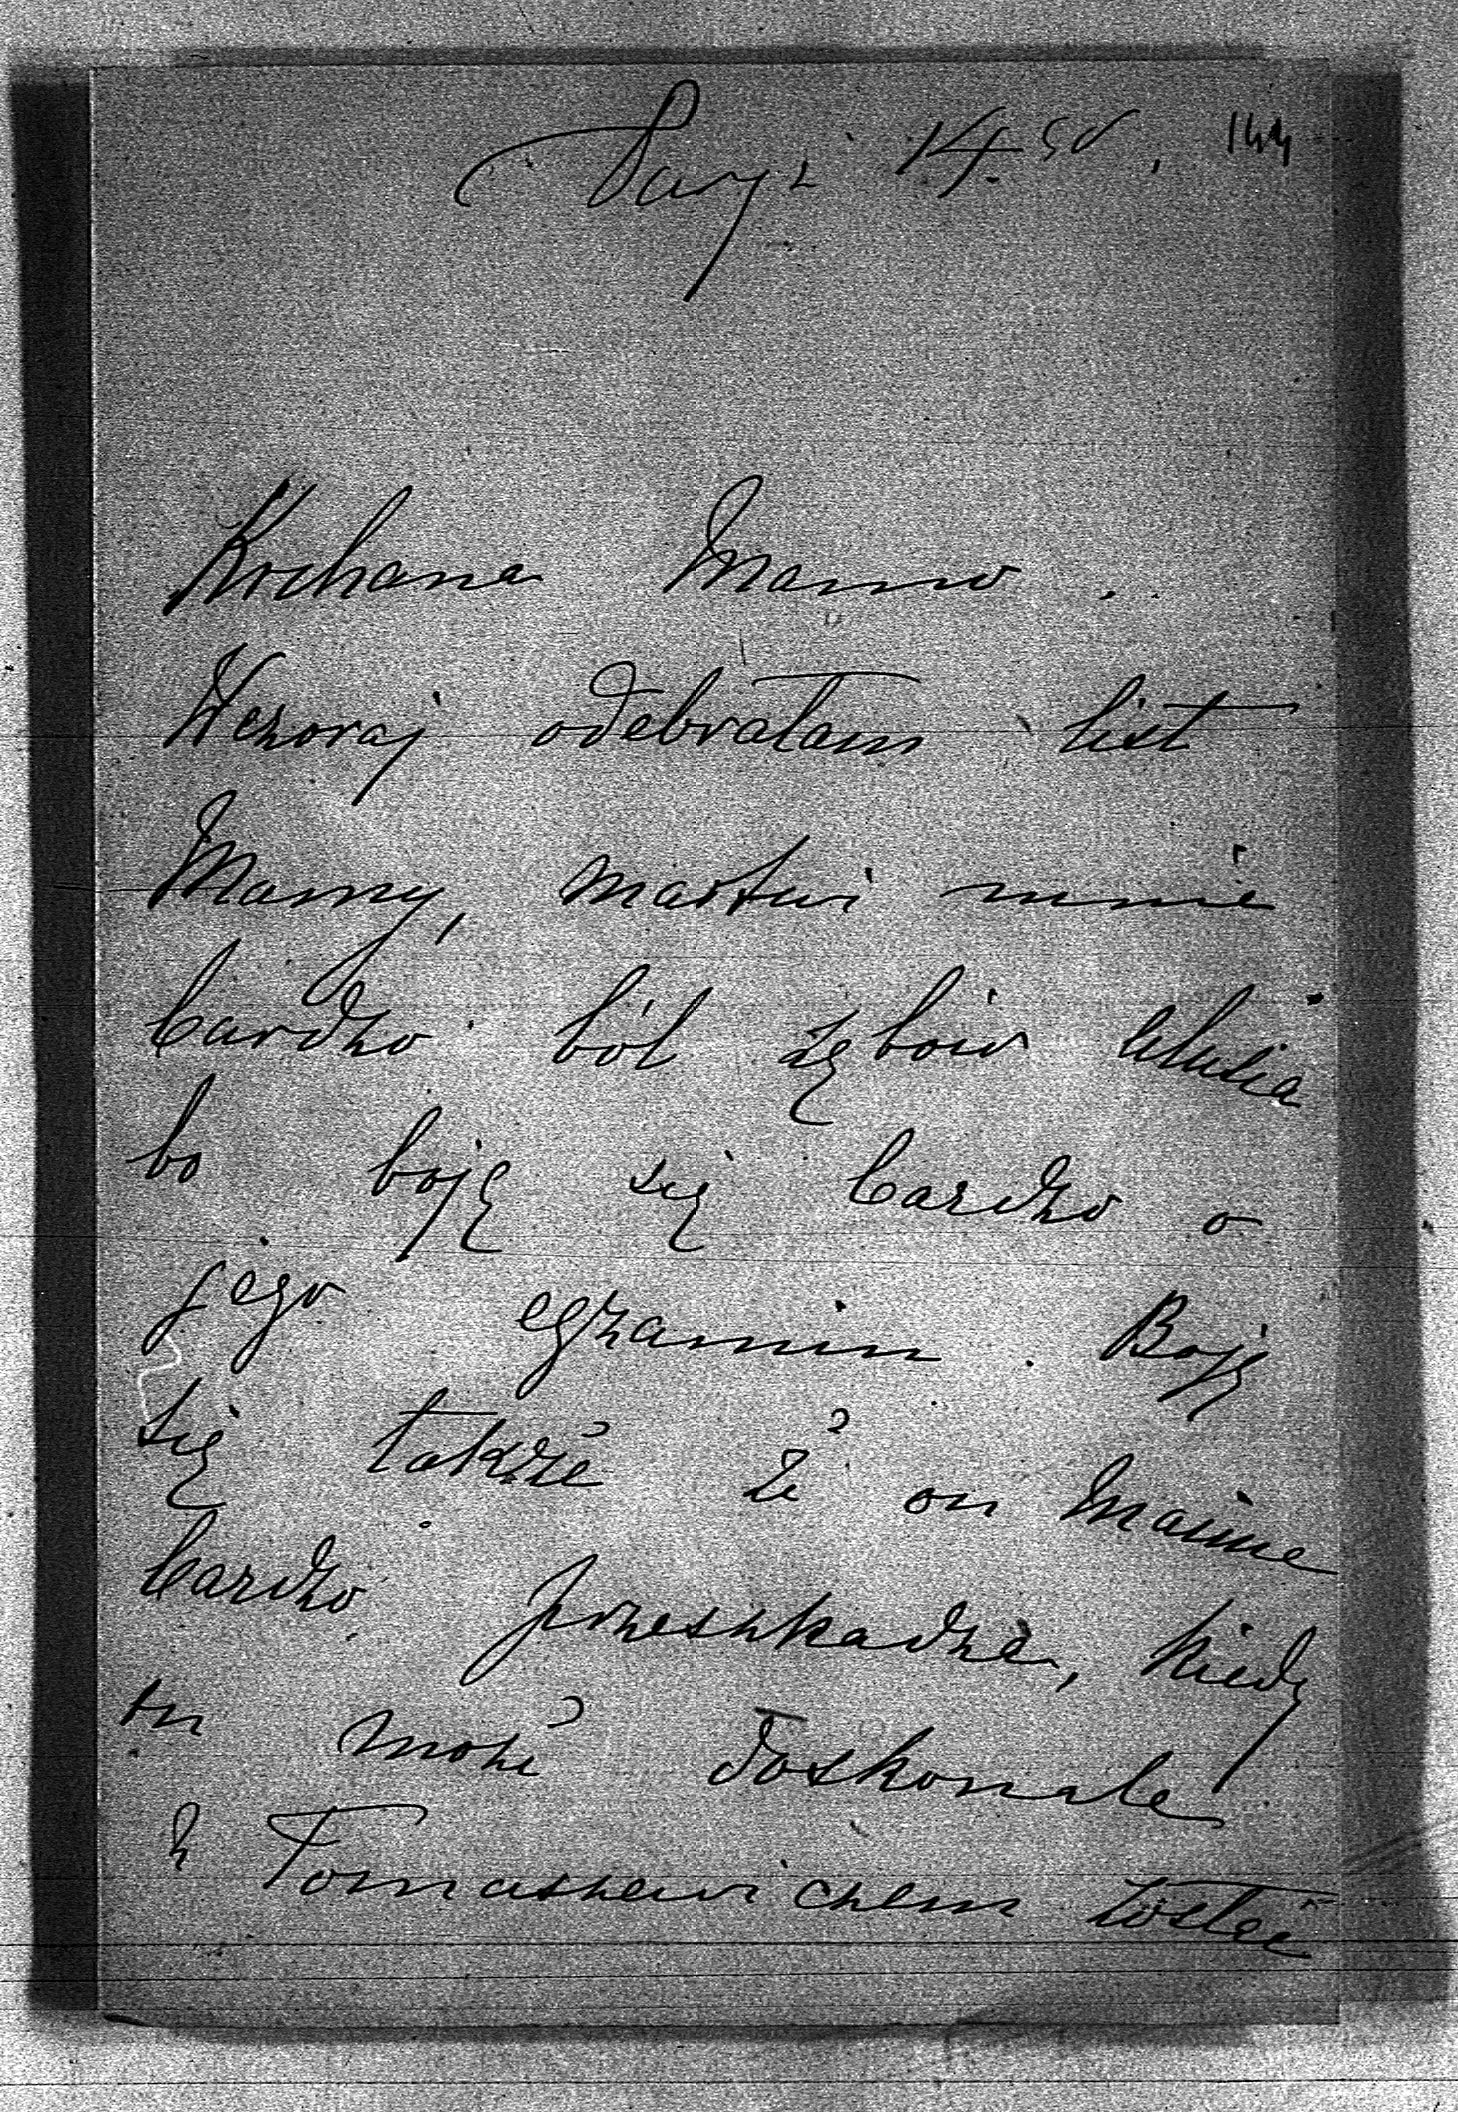 Paryż 14. 144
Kochana Mamo.
Wczoraj odebrałam list
Mamy, martwi mnie
bardzo ból zębów
bo boję się bardzo o
jego egzamin. Boję
się także że on Mamie
bardzo przeszkadza, kiedy
on może doskonale
z Tomaszewiczem zostać